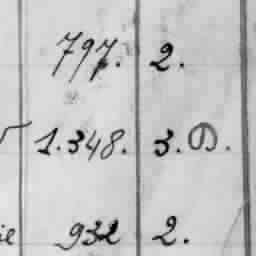 797. 2.
1.348. 3.
932 2.